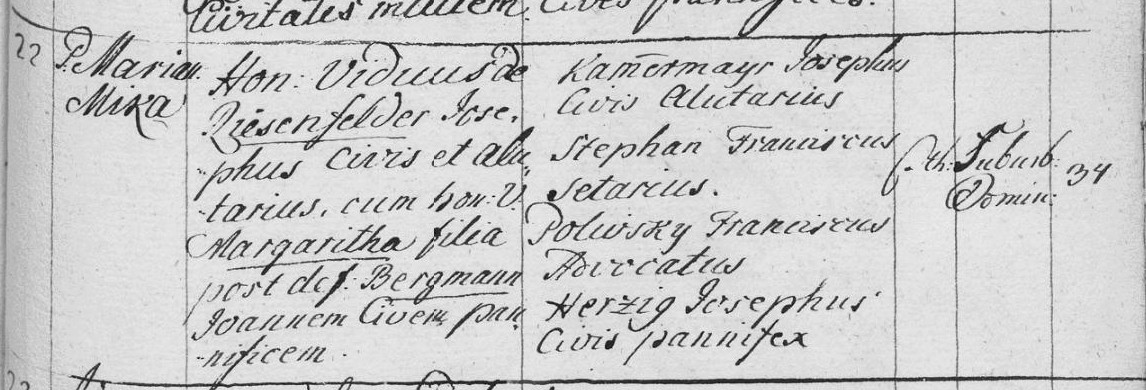 Civitatis
22 P. Marian. Mika
Hon: Viduus de
Riesenfelder Jose.
phus Civis et alu
tarius, cum hon: V.
Margaritha filia
post def. Bergmann
Joannem Civem pan
nificem.
Kamermayr Josephus
Civis Alutarius
Stephan Franciscus
Setarius.
Poliwsky Franciscus
Advocatus
Herzig Josephus
Civis pannifex
Cath: Suburb. 34
Domin:
23